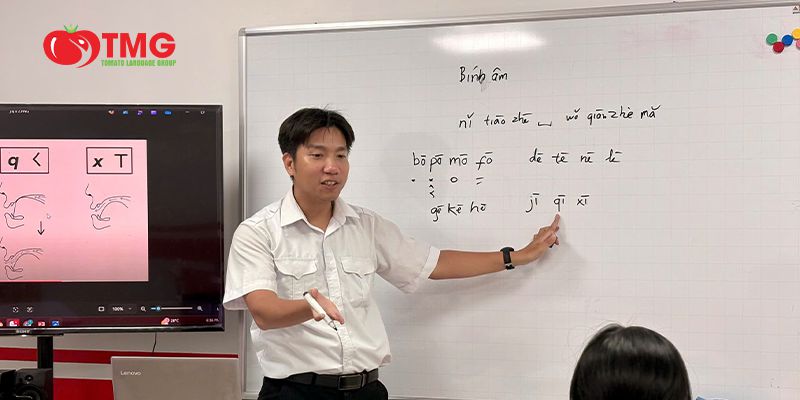 TMG
TOMATO LANGUAGE GROUP
Bính âm
nǐ tiāo zhē wǒ qiān zhè mǎ
bō pō mō fō dē tē nē lē
gē kē hō jī qī xī
q ㄑ x ㄒ
100%
28°C
Lenovo
SONY